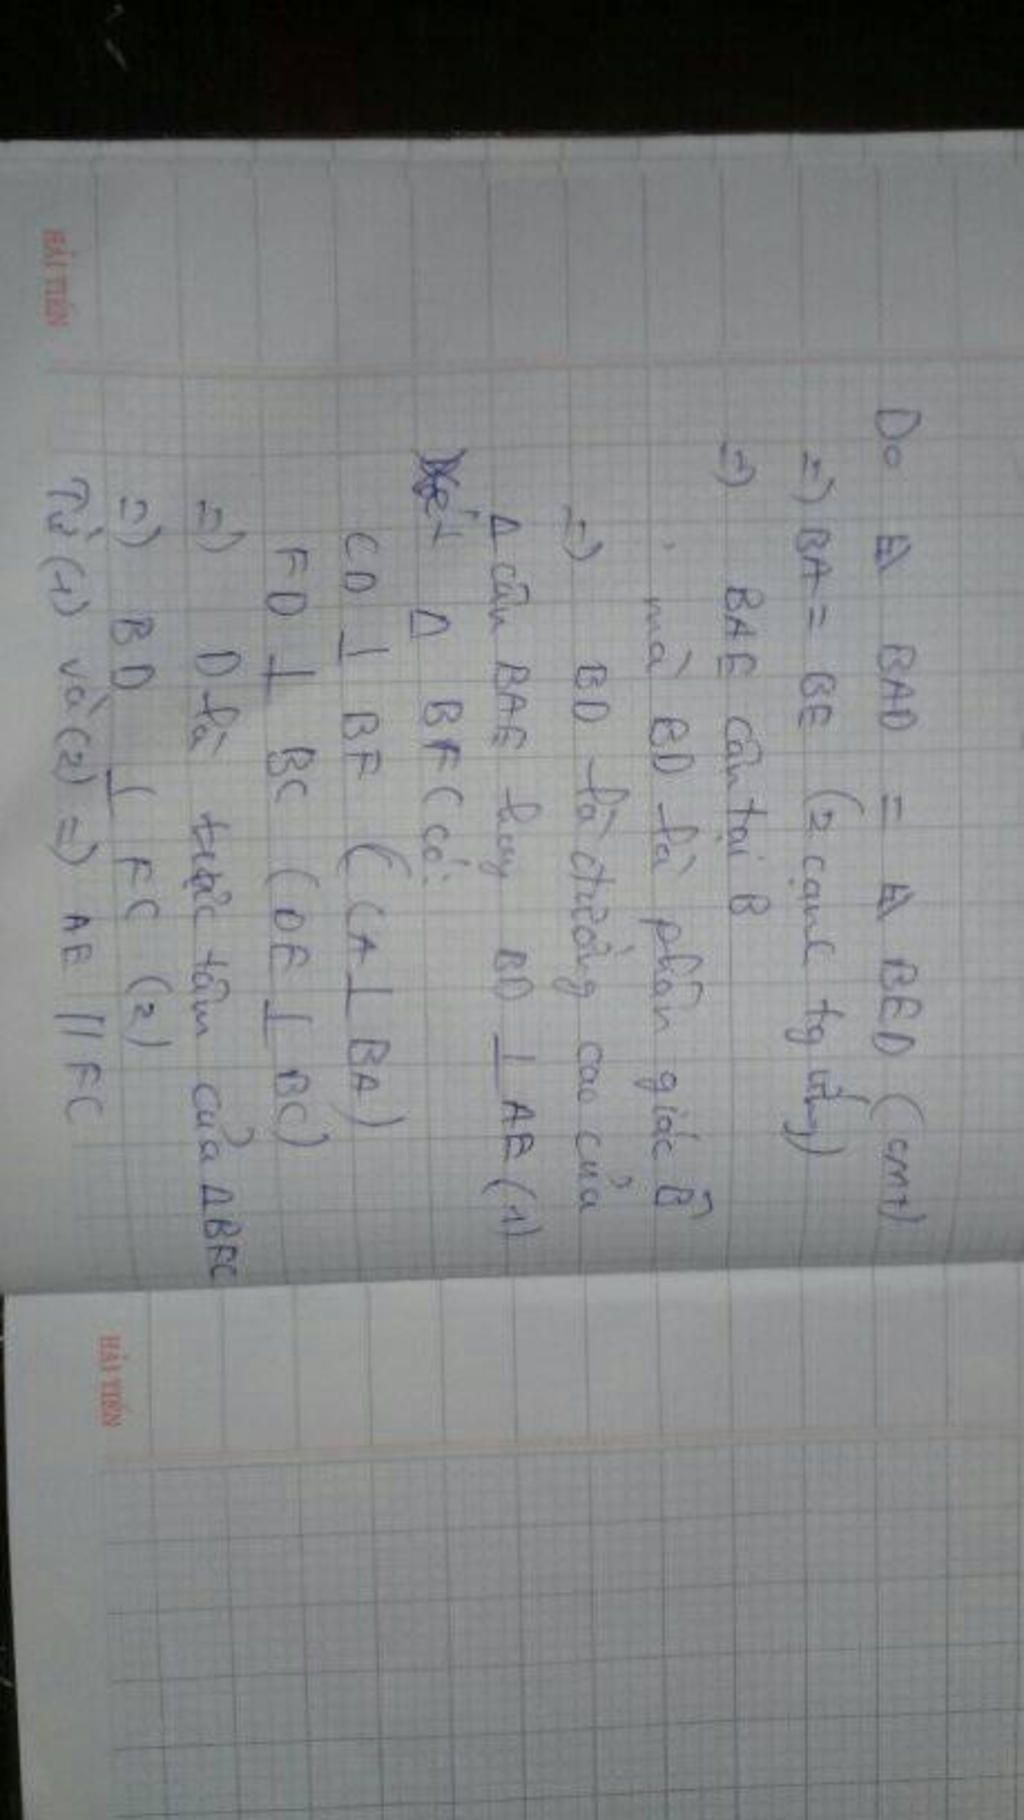 Do Δ BAD = Δ BED (cmt)
=) BA = BE (2 cạnh tg ứng)
=) BAE cân tại B
mà BD là phân giác B̂
=) BD là đường cao của
Δ cân BAE hay BD ⊥ AE (1)
Xét Δ BFC có:
CD ⊥ BF (CA ⊥ BA)
FD ⊥ BC (DE ⊥ BC)
=) D là trực tâm của ΔBFC
=) BD ⊥ FC (2)
Từ (1) và (2) =) AE // FC
HẢI TIẾN
HẢI TIẾN